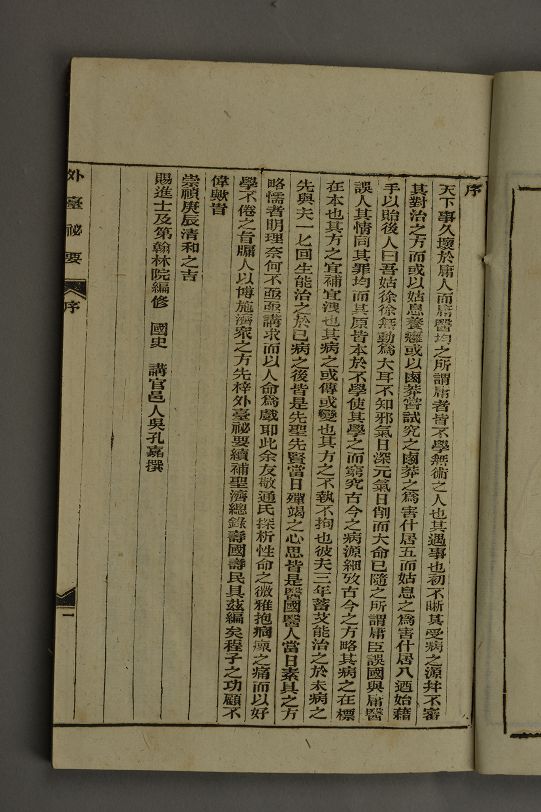 序
天下事久壞於庸人而庸醫均之所謂庸者皆不學無術之人也其遇事也初不晰其受病之源幷不審
其對治之方而或以姑息養癰或以鹵莽嘗試究之鹵莽之爲害什居五而姑息之爲害什居八迺始藉
手以貽後人曰吾姑徐徐無動爲大耳不知邪氣日深元氣日削而大命已隨之所謂庸臣誤國與庸醫
誤人其情同其罪均而其原皆本於不學使其學之而窮究古今之病源細攷古今之方略其病之在標
在本也其方之宜補宜洩也其病之或傳或變也其方之不執不拘也彼夫三年蓄艾能治之於未病之
先與夫一匕回生能治之於已病之後皆是先聖先賢當日殫竭之心思皆是醫國醫人當日素具之方
略懦者明理奈何不亟亟講求而以人命爲戲耶此余友敬通氏探析性命之微雅抱痌瘝之痛而以好
學不倦之旨牖人以博施濟衆之方先梓外臺祕要續補聖濟總錄壽國壽民具茲編矣程子之功顧不
偉歟旹
崇禎庚辰清和之吉
賜進士及第翰林院編修　國史　講官邑人吳孔嘉撰
外臺祕要　序　一